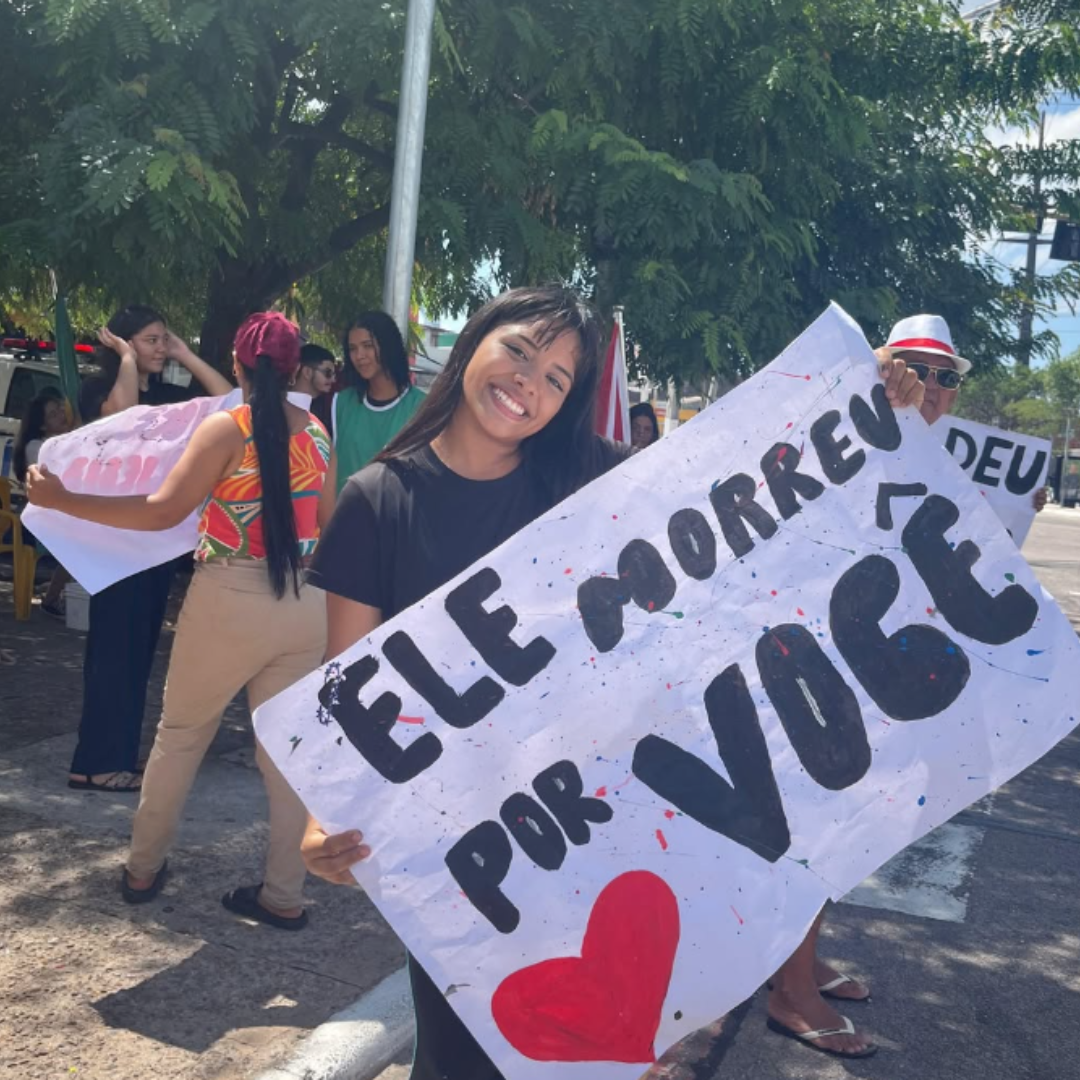 ELE MORREU
POR VOCÊ
DEU